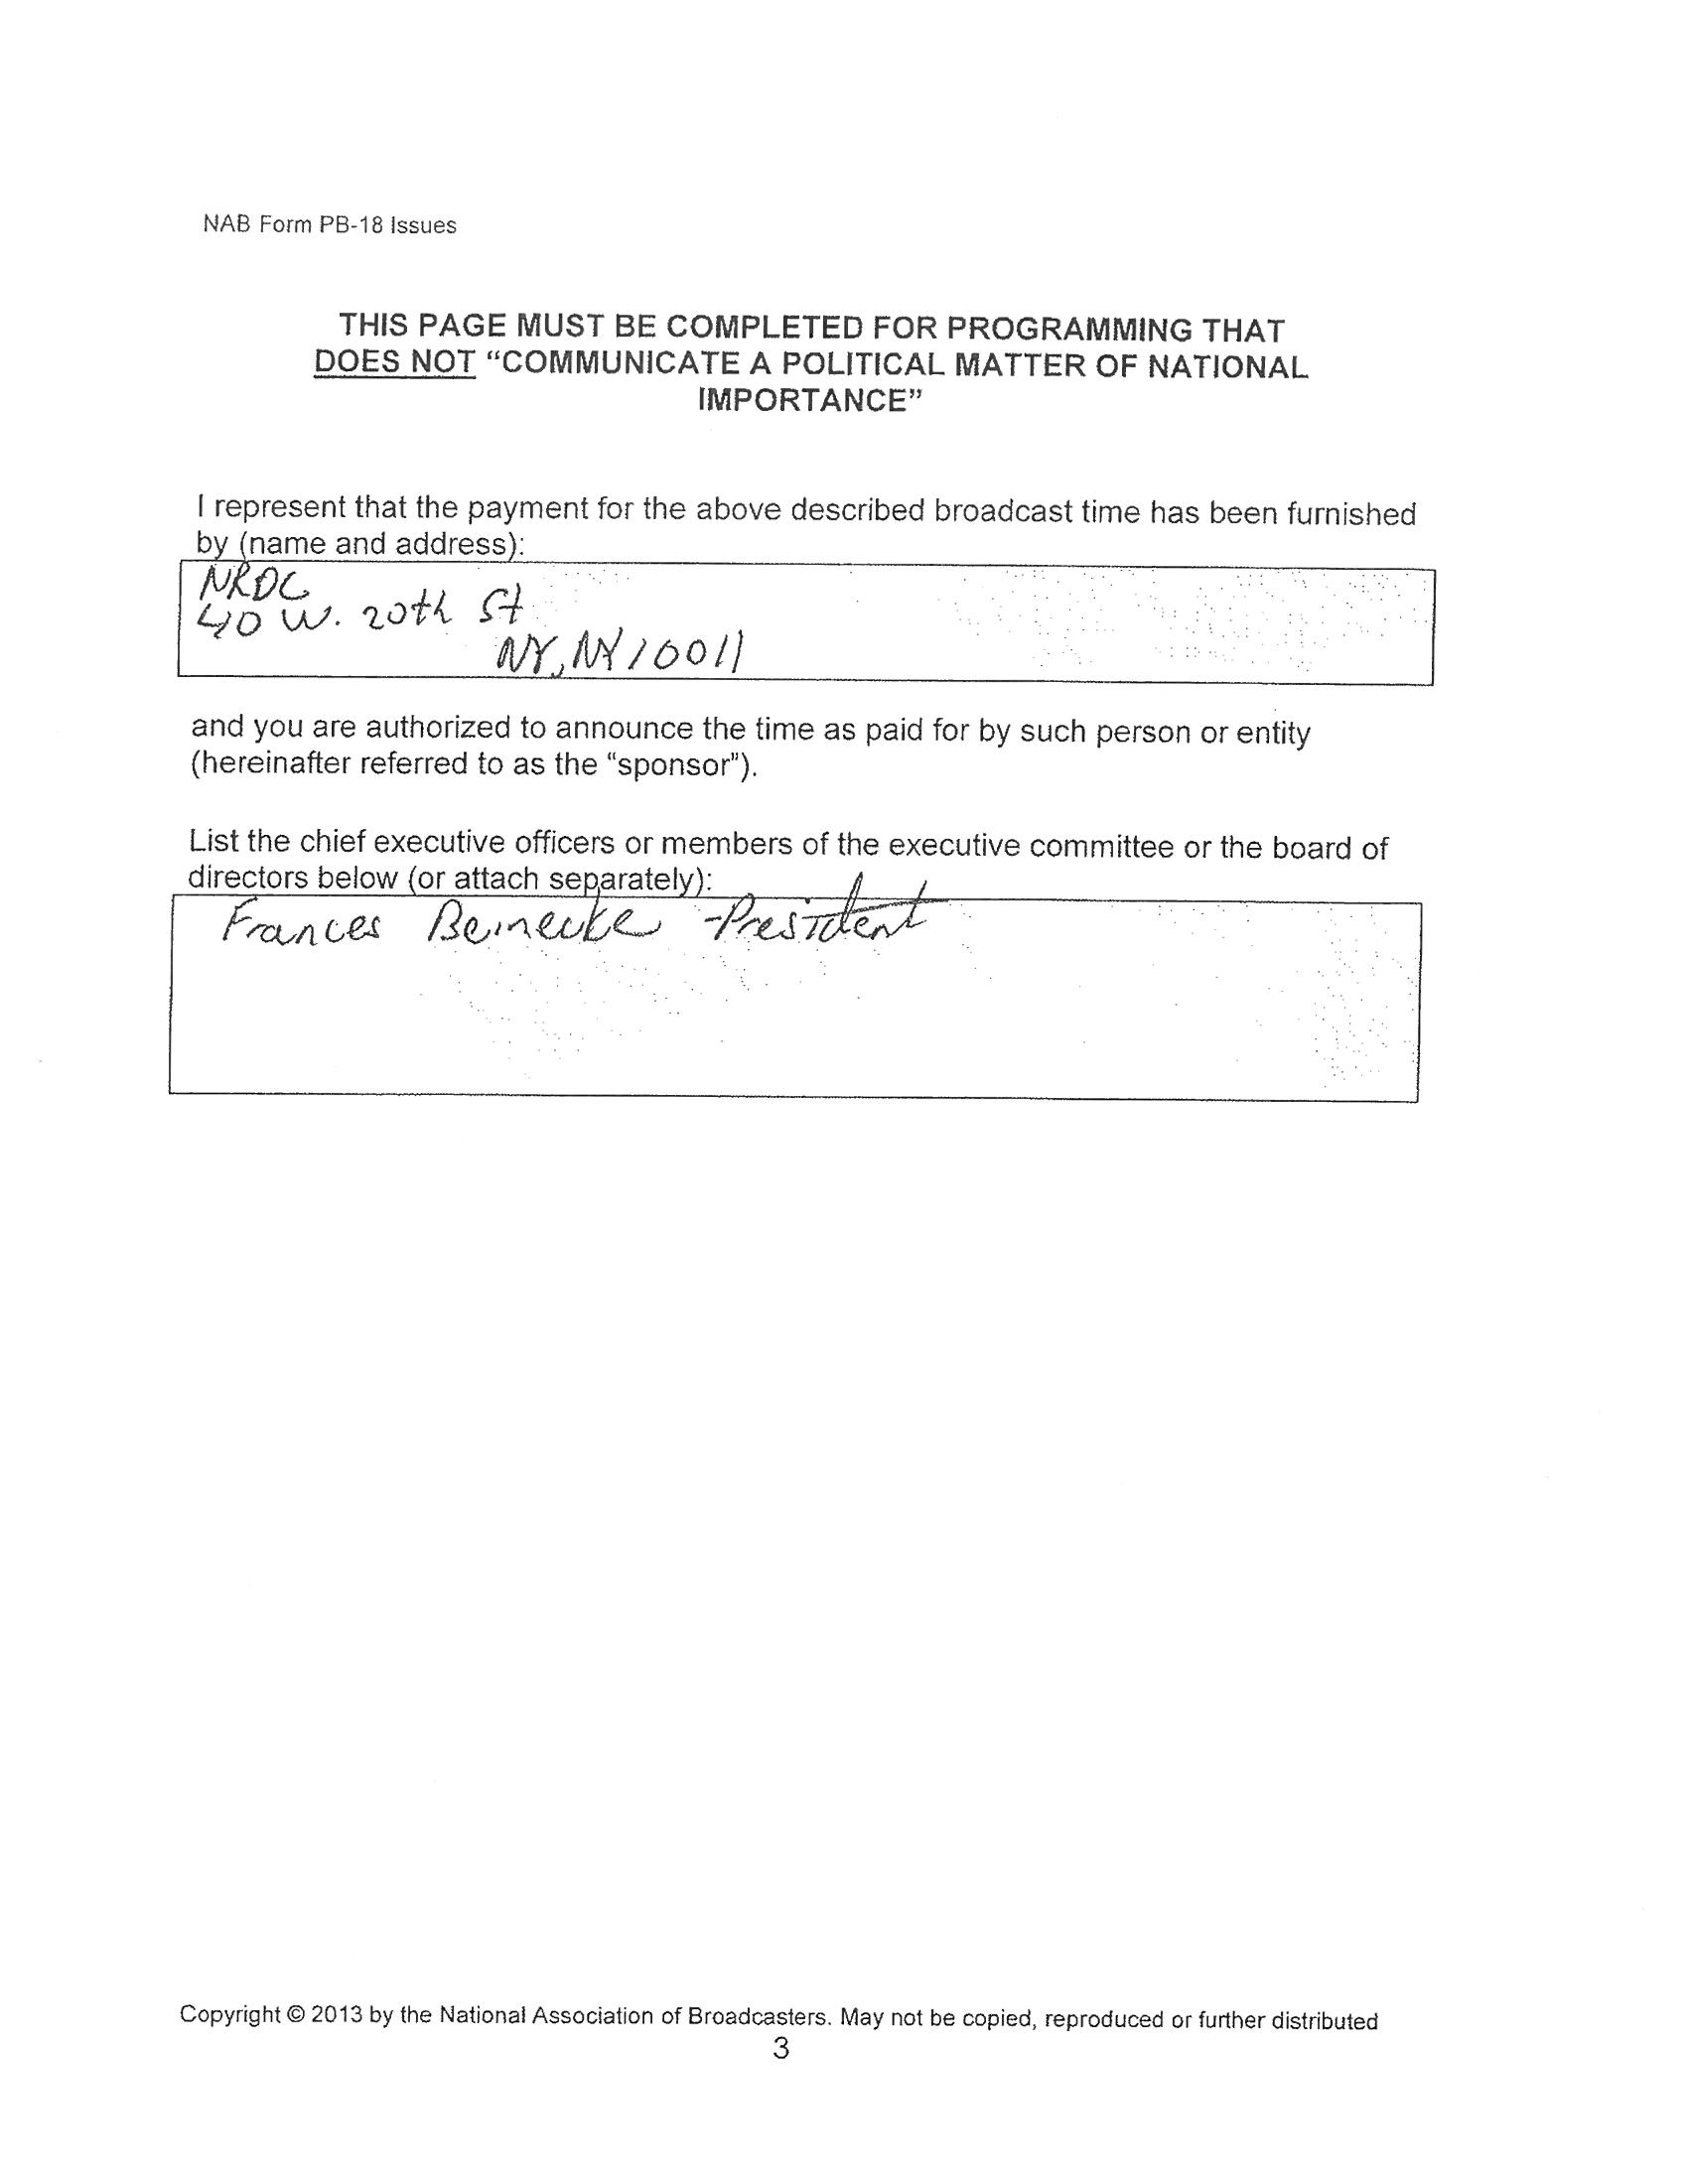 NAB Form PB-18 Issues
THIS PAGE MUST BE COMPLETED FOR PROGRAMMING THAT
DOES NOT “COMMUNICATE A POLITICAL MATTER OF NATIONAL
IMPORTANCE”
I represent that the payment for the above described broadcast time has been furnished
by (name and address):
NRDC
40 W. 20th St
NY, NY 10011
and you are authorized to announce the time as paid for by such person or entity
(hereinafter referred to as the “sponsor”).
List the chief executive officers or members of the executive committee or the board of
directors below (or attach separately):
Frances Beinecke -President
Copyright © 2013 by the National Association of Broadcasters. May not be copied, reproduced or further distributed
3